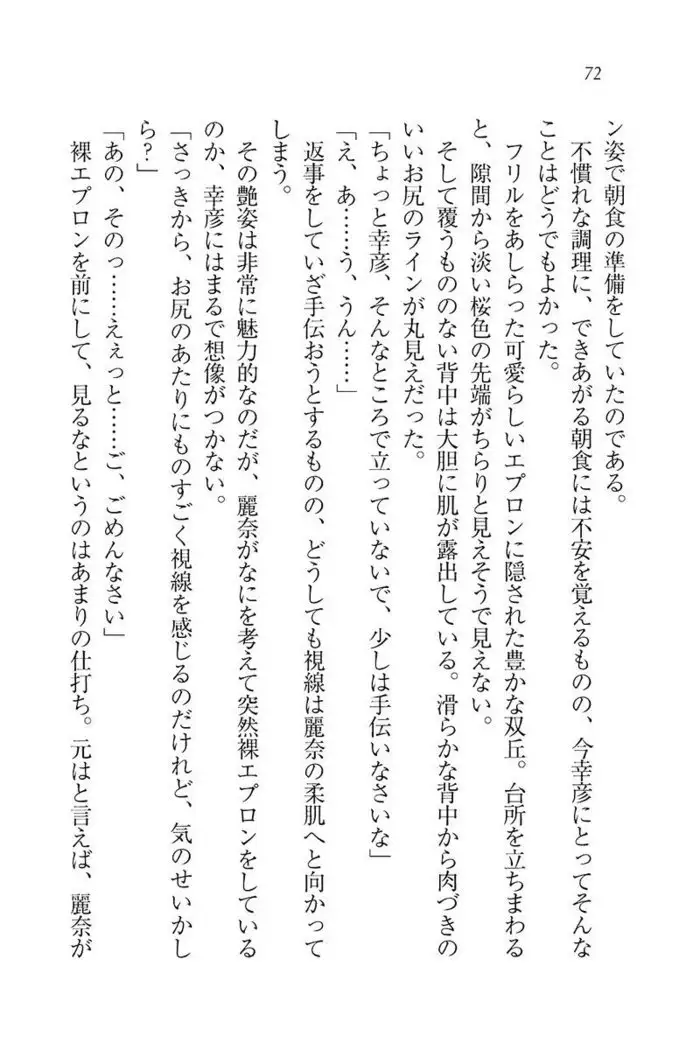 72
ン姿で朝食の準備をしていたのである。
不慣れな調理に、できあがる朝食には不安を覚えるものの、今幸彦にとってそんな
ことはどうでもよかった。
フリルをあしらった可愛らしいエプロンに隠された豊かな双丘。台所を立ちまわる
と、隙間から淡い桜色の先端がちらりと見えそうで見えない。
そして覆うもののない背中は大胆に肌が露出している。滑らかな背中から肉づきの
いいお尻のラインが丸見えだった。
「ちょっと幸彦、そんなところで立っていないで、少しは手伝いなさいな」
「え、あ……う、うん……」
返事をしていざ手伝おうとするものの、どうしても視線は麗奈の柔肌へと向かって
しまう。
その艶姿は非常に魅力的なのだが、麗奈がなにを考えて突然裸エプロンをしている
のか、幸彦にはまるで想像がつかない。
「さっきから、お尻のあたりにものすごく視線を感じるのだけれど、気のせいかし
ら？」
「あの、そのっ……えぇっと……ご、ごめんなさい」
裸エプロンを前にして、見るなというのはあまりの仕打ち。元はと言えば、麗奈が